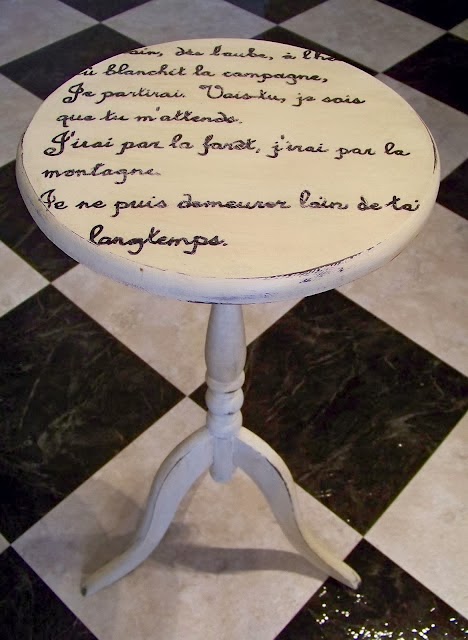 ain, dès laube, à l'h
où blanchit la campagne,
Je partirai. Vois-tu, je sais
que tu m'attends.
J'irai par la forêt, j'irai par la
montagne.
Je ne puis demeurer loin de toi
longtemps.